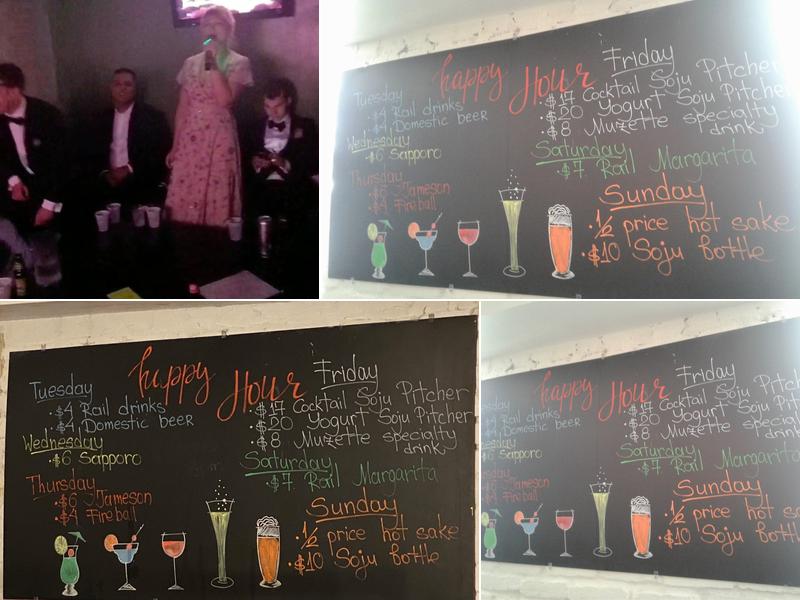 happy Hour
Tuesday
$4 Rail drinks
$4 Domestic beer
Wednesday
$6 Sapporo
Thursday
$6 Jameson
$4 Fireball
Friday
$17 Cocktail Soju Pitcher
$20 Yogurt Soju Pitcher
$8 Muzette specialty
drink
Saturday
$7 Rail Margarita
Sunday
1/2 price hot sake
$10 Soju bottle
happy Hour
Tuesday
$4 Rail drinks
$4 Domestic beer
Wednesday
$6 Sapporo
Thursday
$6 Jameson
$4 Fireball
Friday
$17 Cocktail Soju Pitcher
$20 Yogurt Soju Pitcher
$8 Muzette specialty
drink
Saturday
$7 Rail Margarita
Sunday
1/2 price hot sake
$10 Soju bottle
happy Hour
$4 Rail drinks
$4 Domestic beer
$6 Sapporo
$6 Jameson
$4 Fireball
Friday
$17 Cocktail Soju Pitch
$20 Yogurt Soju Pitch
$8 Muzette special
drink
Saturday
$7 Rail Margarita
Sunday
1/2 price hot sa
$10 Soju bottl